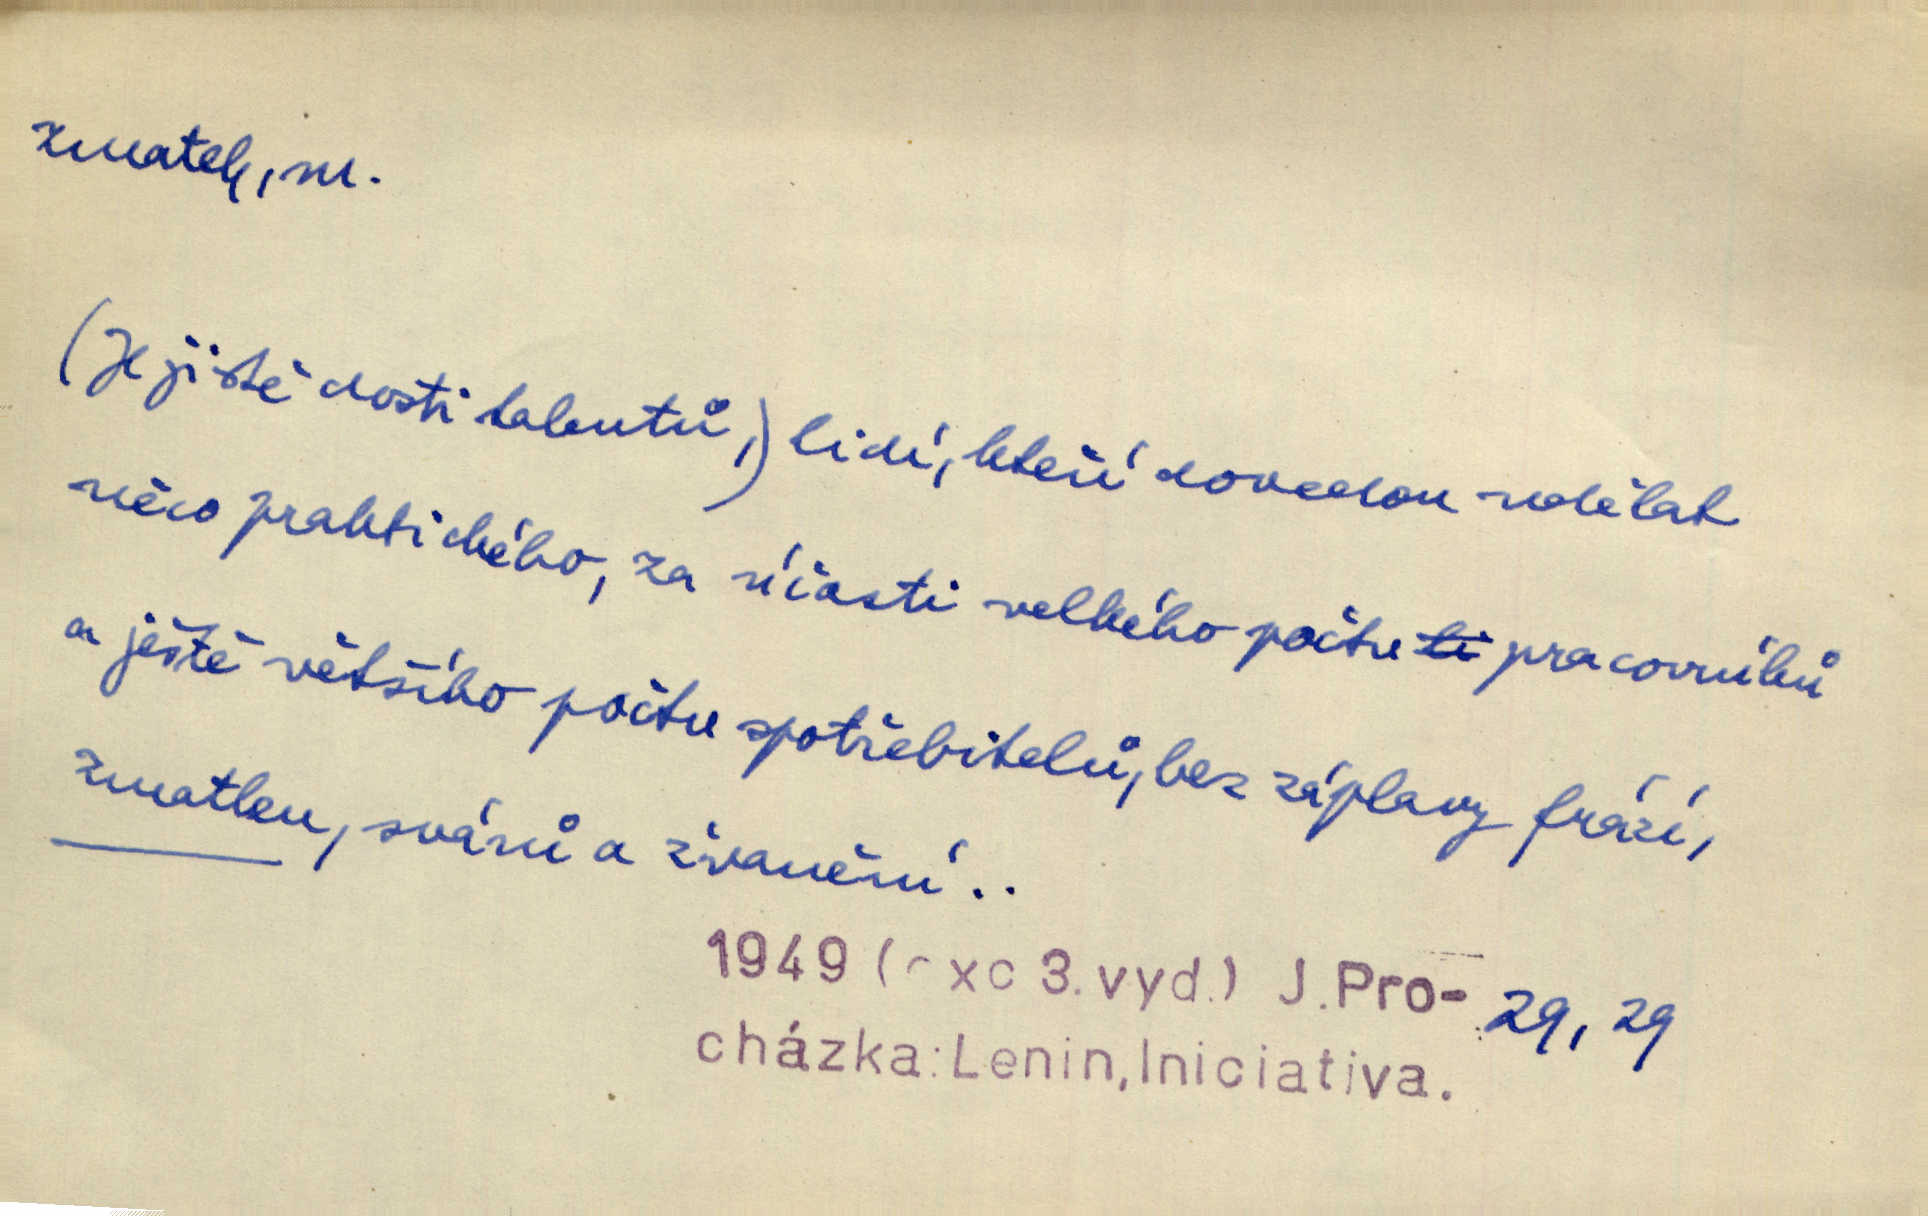 zmatek, m.
(Je jistě dosti talentů,) lidí, kteří dovedou udělat
něco praktického, za účasti velkého počtu li pracovníků
a ještě většího počtu spotřebitelů, bez záplavy frází,
zmatku, svárů a žvanění..
1949 (rxc 3.vyd.) J.Pro- 29, 29
cházka:Lenin,Iniciativa.